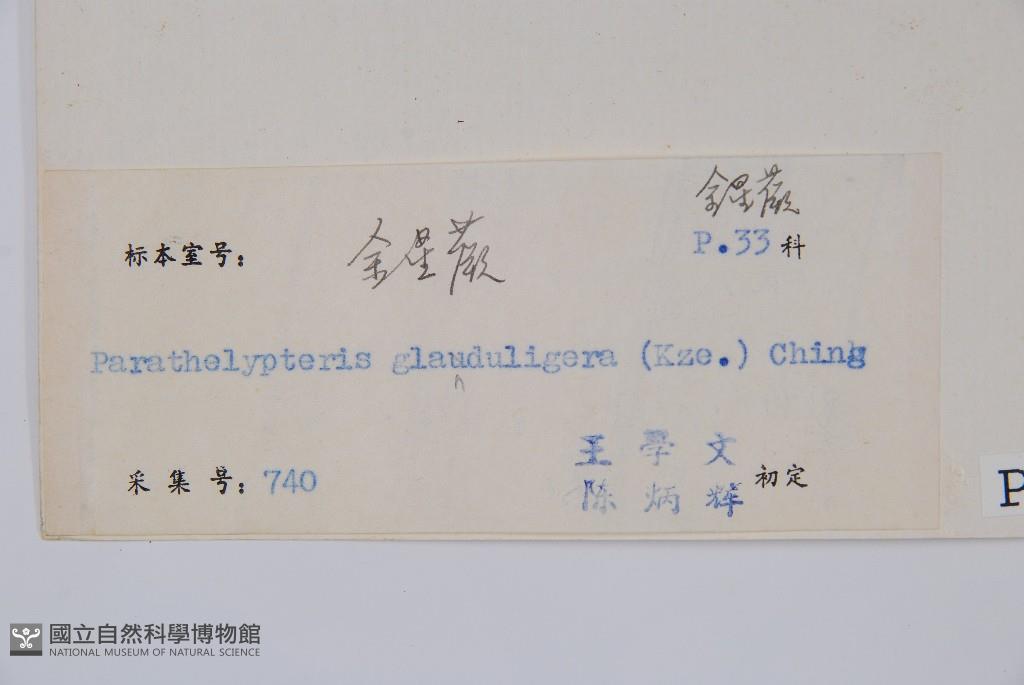 金星蕨
标本室号： 金星蕨 P.33 科
Parathelypteris glauduligera (Kze.) Ching
∧
王 學 文
采 集 号：740 初定
陈 炳 辉
P
國立自然科學博物館
NATIONAL MUSEUM OF NATURAL SCIENCE